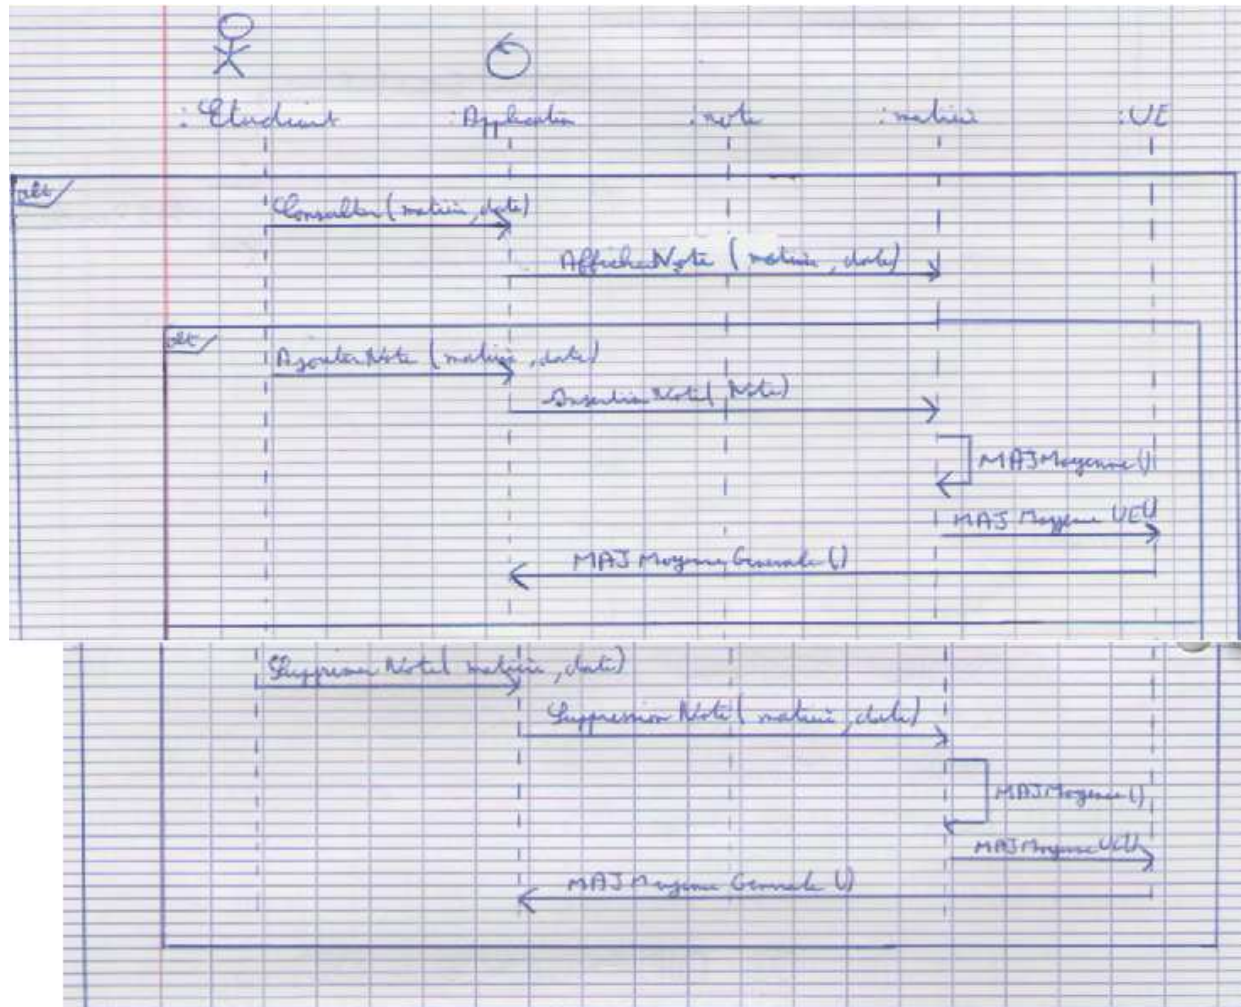 : Etudiant : Application : note : matière : UE
alt
Consulter (matière, date)
AfficherNote (matière, date)
alt
AjouterNote (matière, date)
InsertionNote(Note)
MAJMoyenne()
MAJ Moyenne UE()
MAJ Moyenne Generale ()
Supprimer Note( matière, date)
Suppression Note( matière, date)
MAJMoyenne()
MAJMoyenne UE()
MAJ Moyenne Generale ()